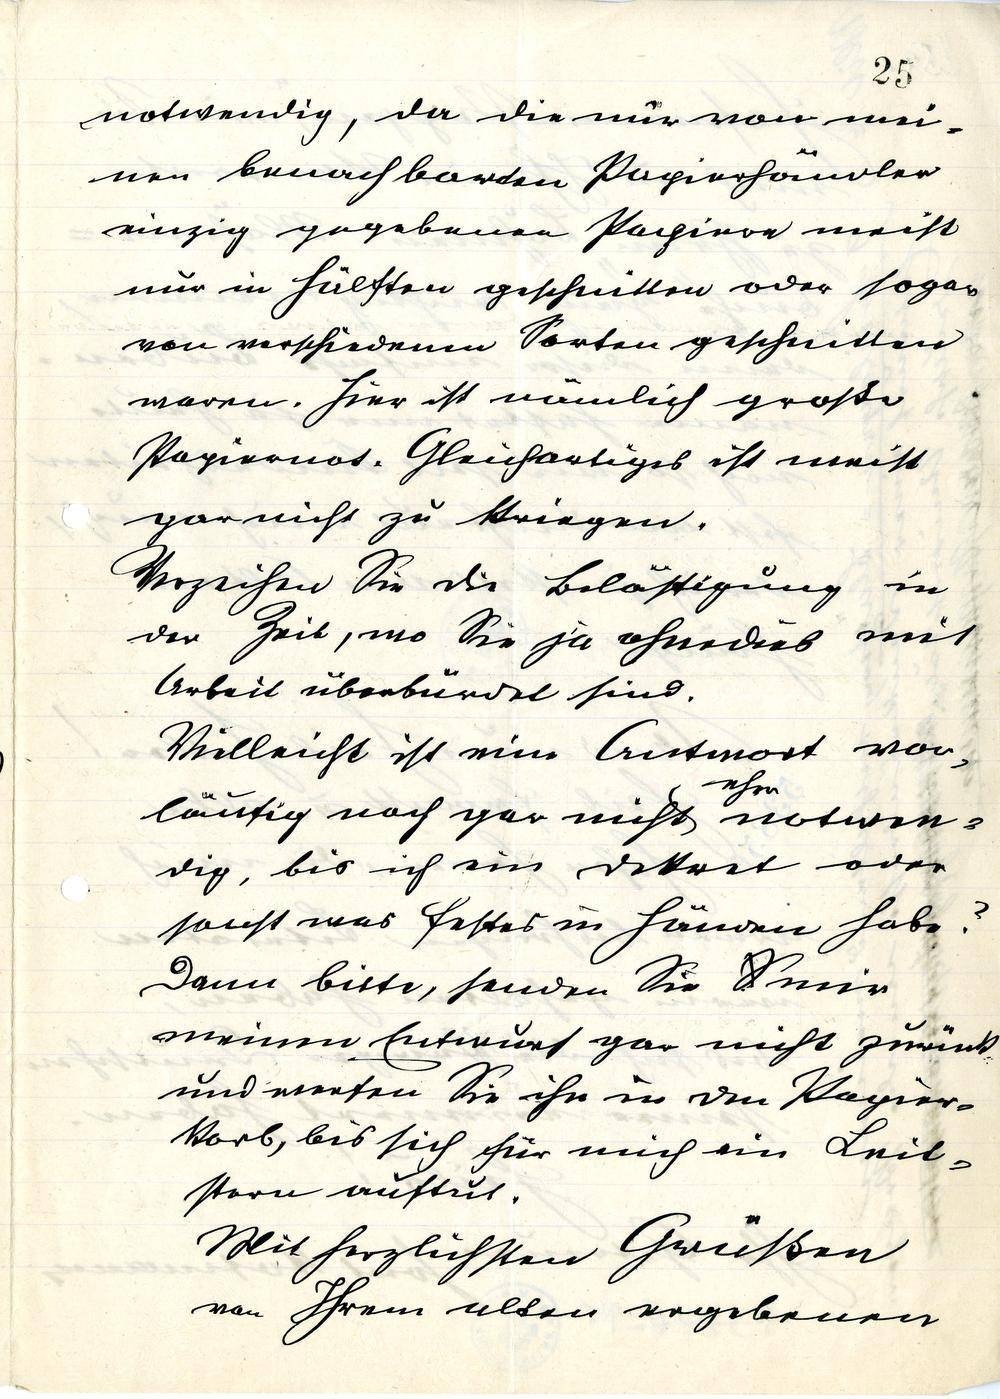 25
notwendig, da die nur von mei-
nen benachbarten Papierhändler
einzig gegebenen Papiere meist
nur in Hälften geschnitten oder sogar
von verschiedenen Sorten geschnitten
waren. Hier ist nämlich große
Papiernot. Gleichartiges ist meist
gar nicht zu kriegen.
Verzeihen Sie die Belästigung in
der Zeit, wo Sie ja ohnedies mit
Arbeit überbürdet sind.
Vielleicht ist eine Antwort vor-
läufig noch gar nicht notwen-
dig, bis ich ein Dekret oder
sonst was festes in Händen habe?
Dann bitte, senden Sie mir
meinen Entwurf gar nicht zurück
und werfen Sie ihn in den Papier-
korb, bis sich für mich ein Leit-
stern auftut.
Mit herzlichsten Grüßen
von Ihrem alten ergebenen